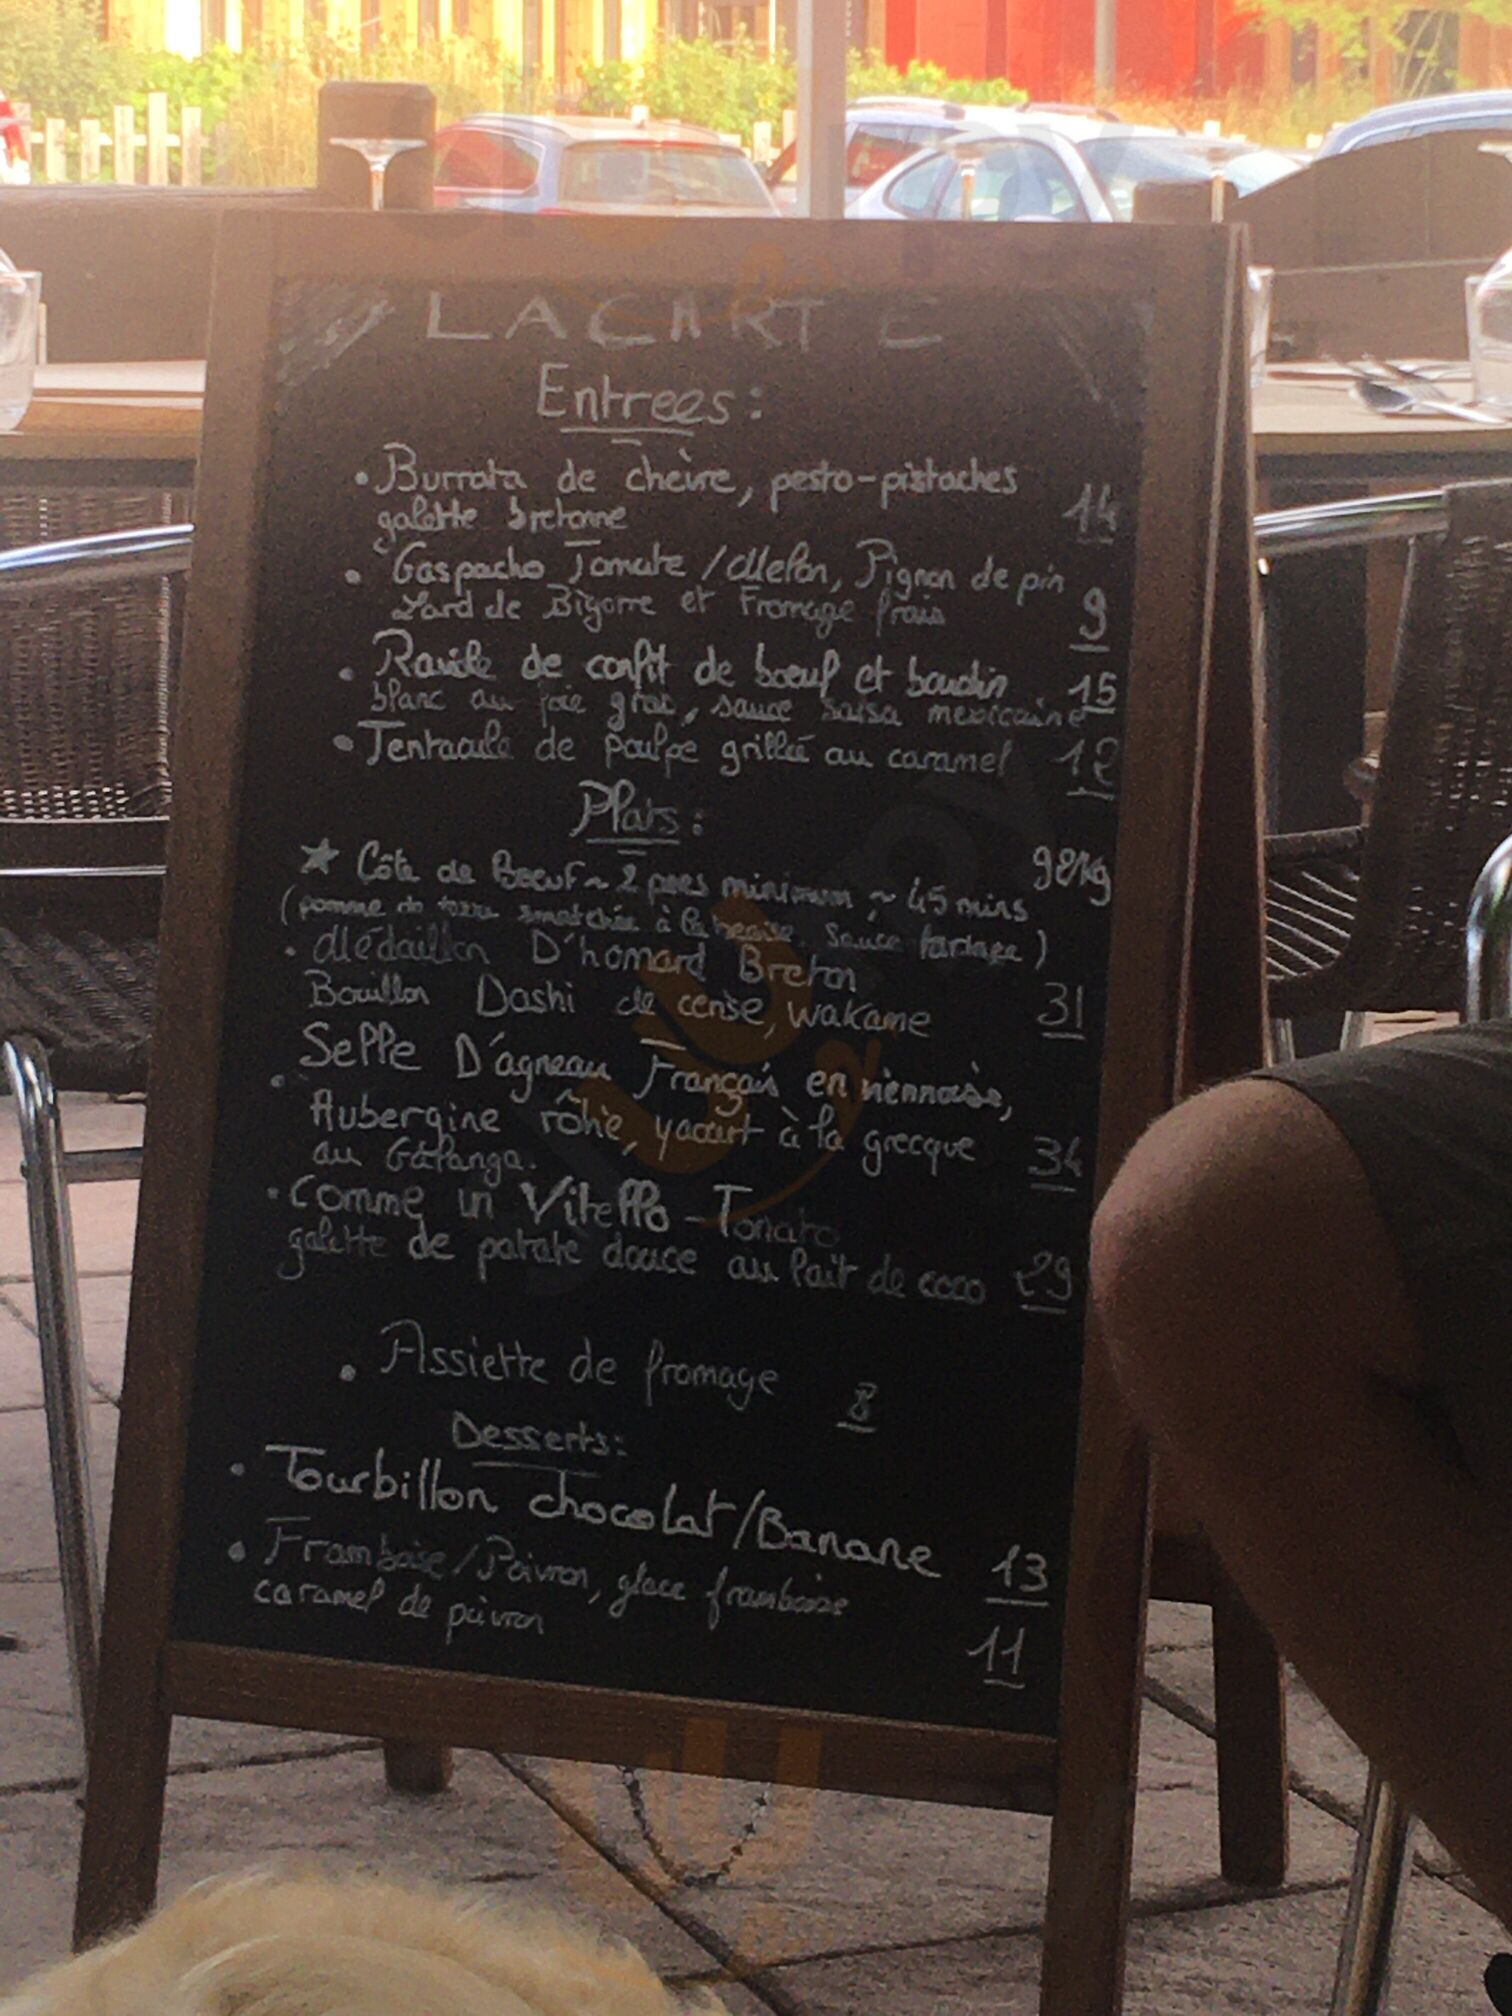 LA CARTE
Entrees:
• Burrata de chèvre, pesto-pistaches
galette bretonne 14
• Gaspacho Tomate / Melon, Pignon de pin
Lard de Bigorre et Fromage frais 9
• Raviole de confit de boeuf et boudin 15
blanc au foie gras, sauce salsa mexicaine
• Tentacule de poulpe grillée au caramel 12
Plats:
★ Côte de Boeuf ~ 2 pers minimum ~ 45 mins 98/kg
(pomme de terre smatchée à la sauce tartare)
• Médaillon D'homard Breton
Bouillon Dashi de cerise, wakame 31
• Selle D'agneau Français en viennoise,
Aubergine rôtie, yaourt à la grecque 34
au Galanga.
• Comme un Vitello-Tonato
galette de patate douce au lait de coco 29
• Assiette de fromage 8
Desserts:
• Tourbillon chocolat/Banane 13
• Framboise/Poivron, glace framboise
caramel de poivron 11